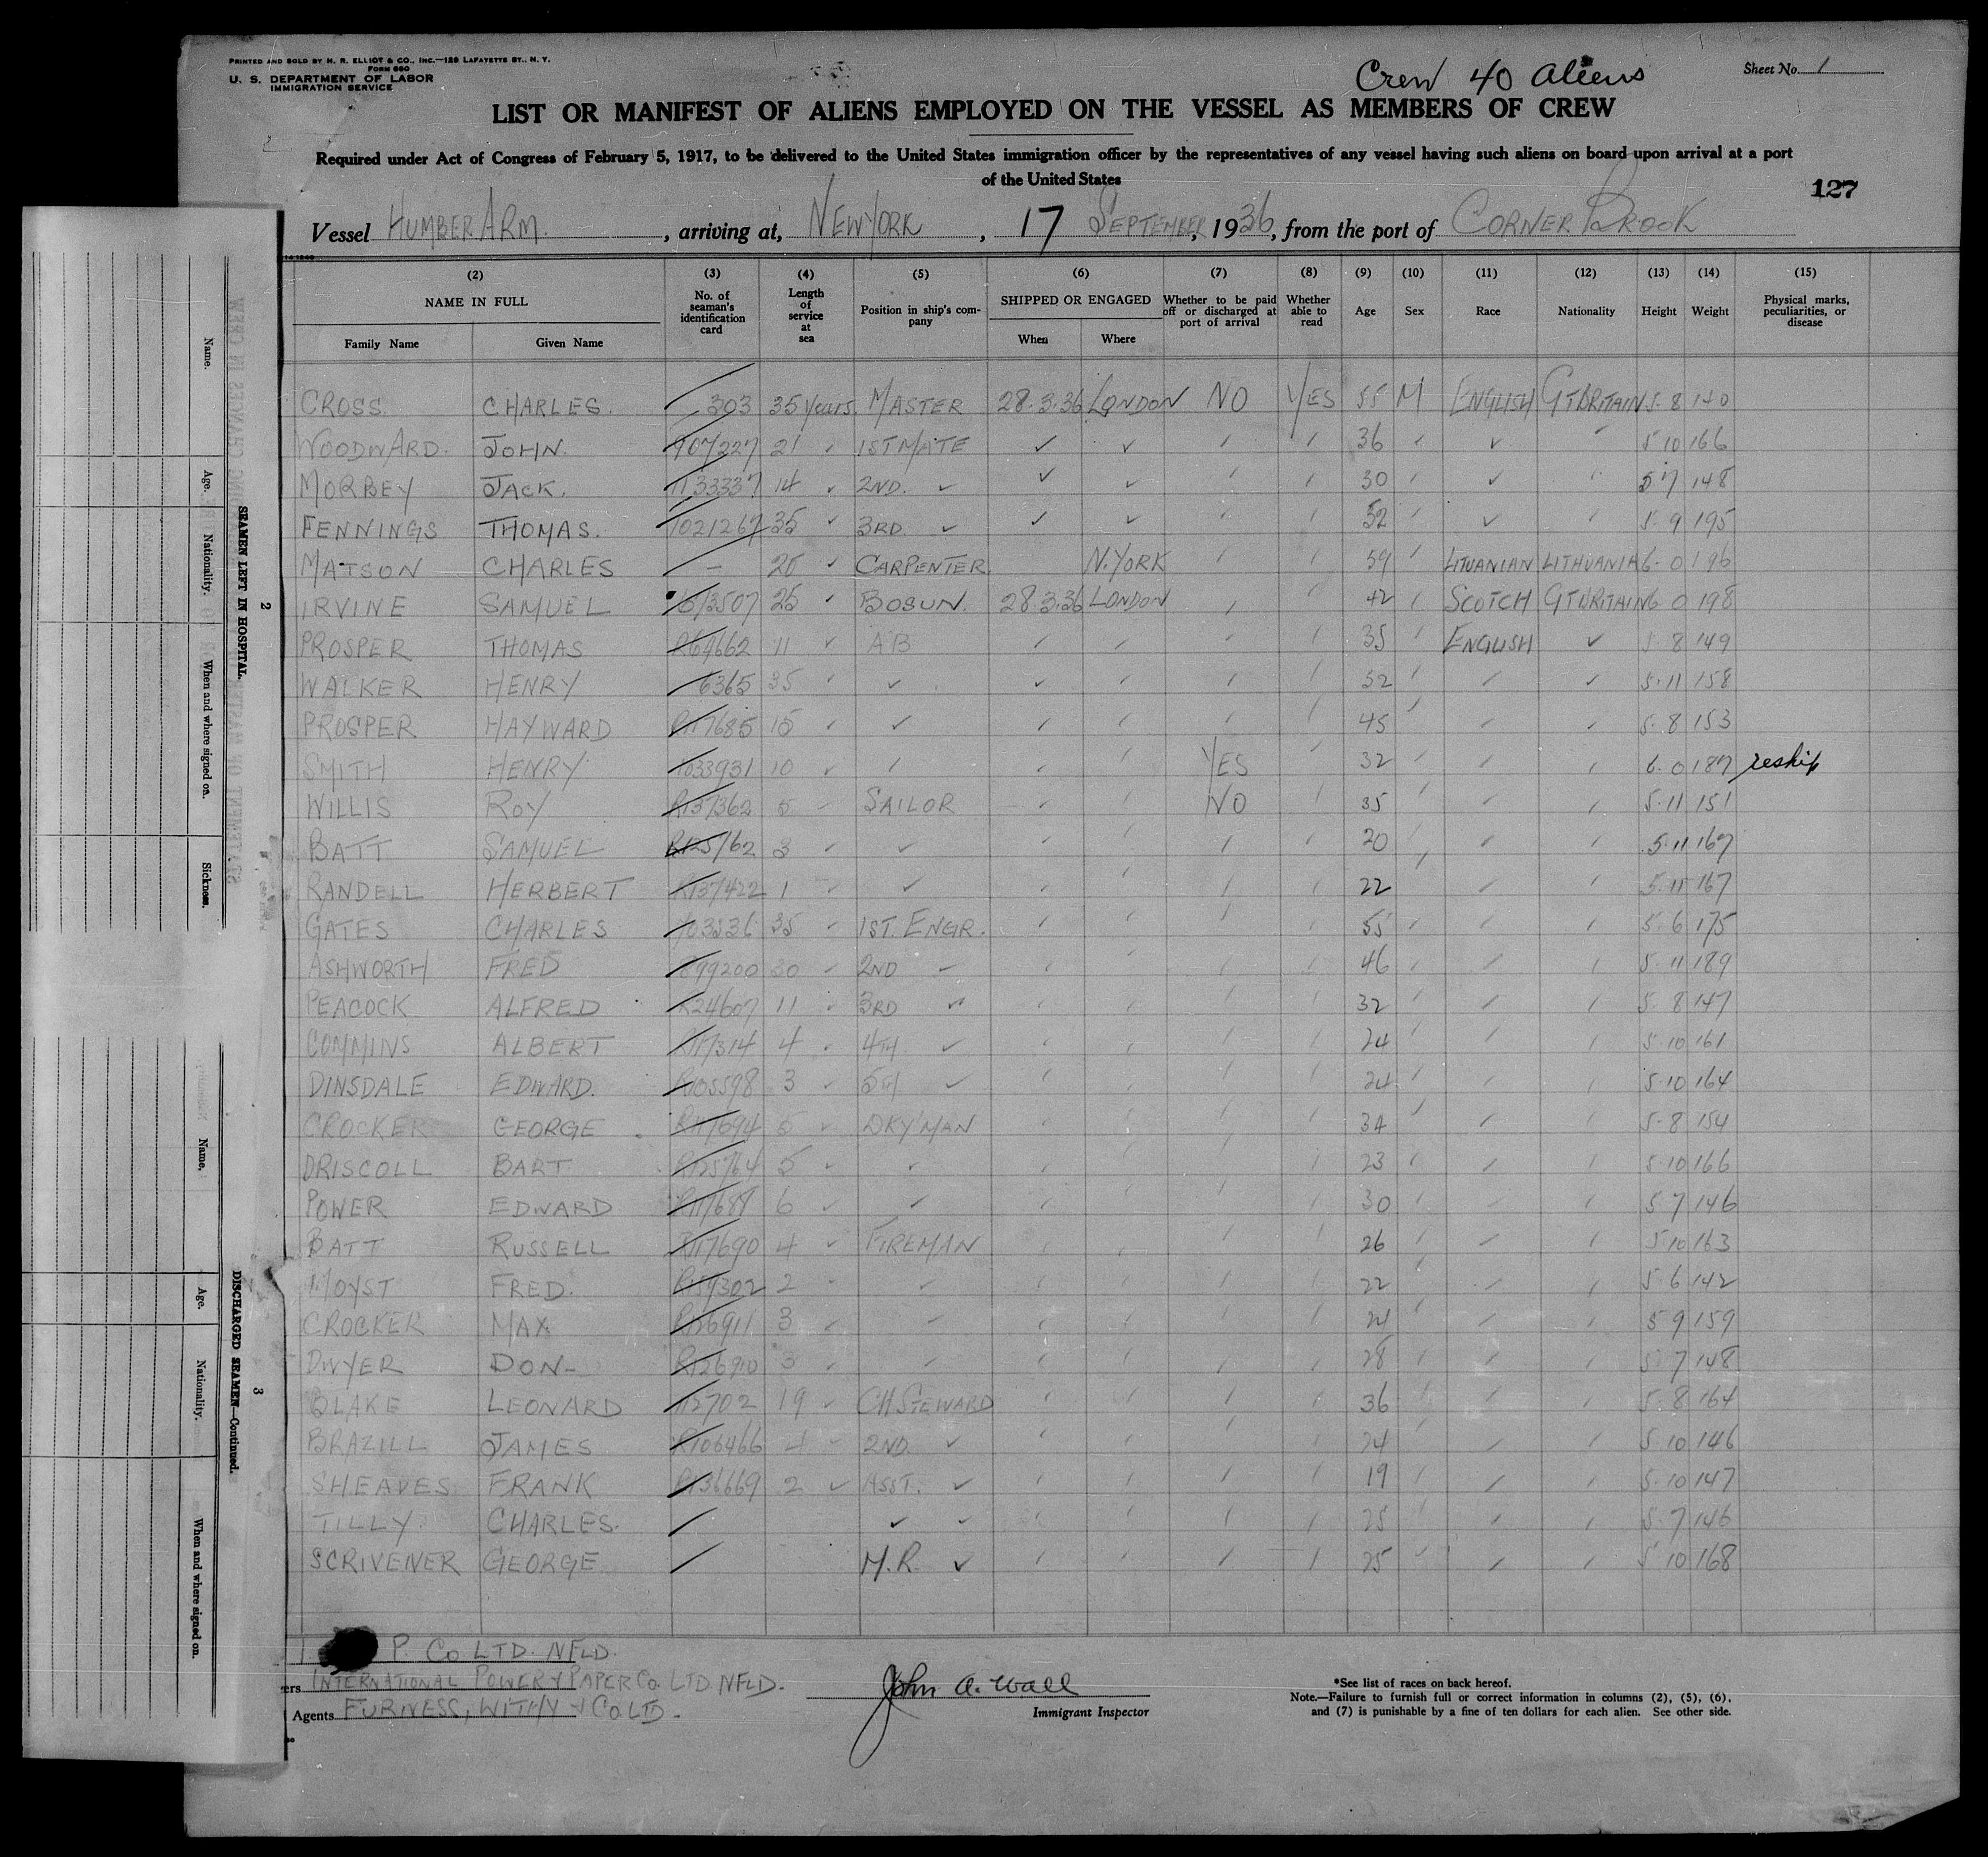 PRINTED AND SOLD BY H. R. ELLIOT & CO., INC.—129 LAFAYETTE ST., N. Y.
FORM 680
U. S. DEPARTMENT OF LABOR
IMMIGRATION SERVICE
Crew 40 aliens
Sheet No. 1
LIST OR MANIFEST OF ALIENS EMPLOYED ON THE VESSEL AS MEMBERS OF CREW
Required under Act of Congress of February 5, 1917, to be delivered to the United States immigration officer by the representatives of any vessel having such aliens on board upon arrival at a port
of the United States
127
Vessel HUMBER ARM., arriving at, NEW YORK, 17 SEPTEMBER, 1936, from the port of CORNER BROOK
(2) (3) (4) (5) (6) (7) (8) (9) (10) (11) (12) (13) (14) (15)
NAME IN FULL
Family Name
Given Name
No. of seaman's identification card
Length of service at sea
Position in ship's company
SHIPPED OR ENGAGED
When
Where
Whether to be paid off or discharged at port of arrival
Whether able to read
Age
Sex
Race
Nationality
Height
Weight
Physical marks, peculiarities, or disease
CROSS. CHARLES. 303 35 years. MASTER 28.3.36 LONDON NO YES 55 M ENGLISH GT BRITAIN 5.8 140
WOODWARD. JOHN. 907227 21 ✓ 1ST MATE ✓ ✓ 36 ✓ 5 10 166
MORBEY JACK. 1133337 14 ✓ 2ND. ✓ ✓ ✓ 30 ✓ 5 7 148
FENNINGS THOMAS. 1021267 35 ✓ 3RD ✓ ✓ ✓ 52 ✓ 5. 9 195
MATSON CHARLES — 25 ✓ CARPENTER. N. YORK 59 LITUANIAN LITHUANIA 6-0 196
IRVINE SAMUEL 613507 25 ✓ BOSUN. 28.3.36 LONDON 42 SCOTCH GT BRITAIN 6 0 198
PROSPER THOMAS R64662 11 ✓ AB 35 ENGLISH ✓ 5.8 149
WALKER HENRY 6365 35 ✓ ✓ ✓ 52 ✓ 5.11 158
PROSPER HAYWARD R117685 15 ✓ ✓ 45 5.8 153
SMITH HENRY 1033931 10 ✓ YES 32 6.0 187 reship
WILLIS ROY R137362 5 SAILOR NO 35 5.11 151
BATT SAMUEL R125162 3 ✓ ✓ 20 5.11 167
RANDELL HERBERT R137422 1 ✓ 22 5.11 167
GATES CHARLES 703536 35 ✓ 1ST. ENGR. 55 5.6 175
ASHWORTH FRED 899200 30 ✓ 2ND ✓ 46 5.11 189
PEACOCK ALFRED R24607 11 3RD ✓ 32 5.8 147
COMMINS ALBERT R117314 4 4TH ✓ 24 5.10 161
DINSDALE EDWARD. R105598 3 ✓ 5TH ✓ 24 5.10 164
CROCKER GEORGE R117694 5 ✓ DKYMAN 34 5-8 154
DRISCOLL BART R125764 5 ✓ 23 5.10 166
POWER EDWARD R117688 6 ✓ ✓ 30 5 7 146
BATT RUSSELL R117690 4 ✓ FIREMAN 26 5.10 163
MOYST FRED. 2 22 5.6 142
CROCKER MAX R126911 3 ✓ 5 9 159
DWYER DON- R126910 3 28 5.7 148
BLAKE LEONARD 112702 19 ✓ CH STEWARD 36 5.8 164
BRAZILL JAMES R106466 4 2ND ✓ 24 5.10 146
SHEAVES FRANK R136669 2 ✓ ASST. ✓ 19 5.10 147
TILLY. CHARLES. ✓ ✓ 25 5.7 146
SCRIVENER GEORGE M.R. ✓ 25 5 10 168
P. CO LTD. NFLD.
INTERNATIONAL POWER & PAPER CO. LTD NFLD.
Agents FURNESS, WITHY & CO LTD.
John A. Wall
Immigrant Inspector
*See list of races on back hereof.
Note.—Failure to furnish full or correct information in columns (2), (5), (6),
and (7) is punishable by a fine of ten dollars for each alien. See other side.
2
SEAMEN LEFT IN HOSPITAL.
Name.
Age.
Nationality.
When and where signed on.
Sickness.
3
DISCHARGED SEAMEN—Continued.
Name.
Age.
Nationality.
When and where signed on.